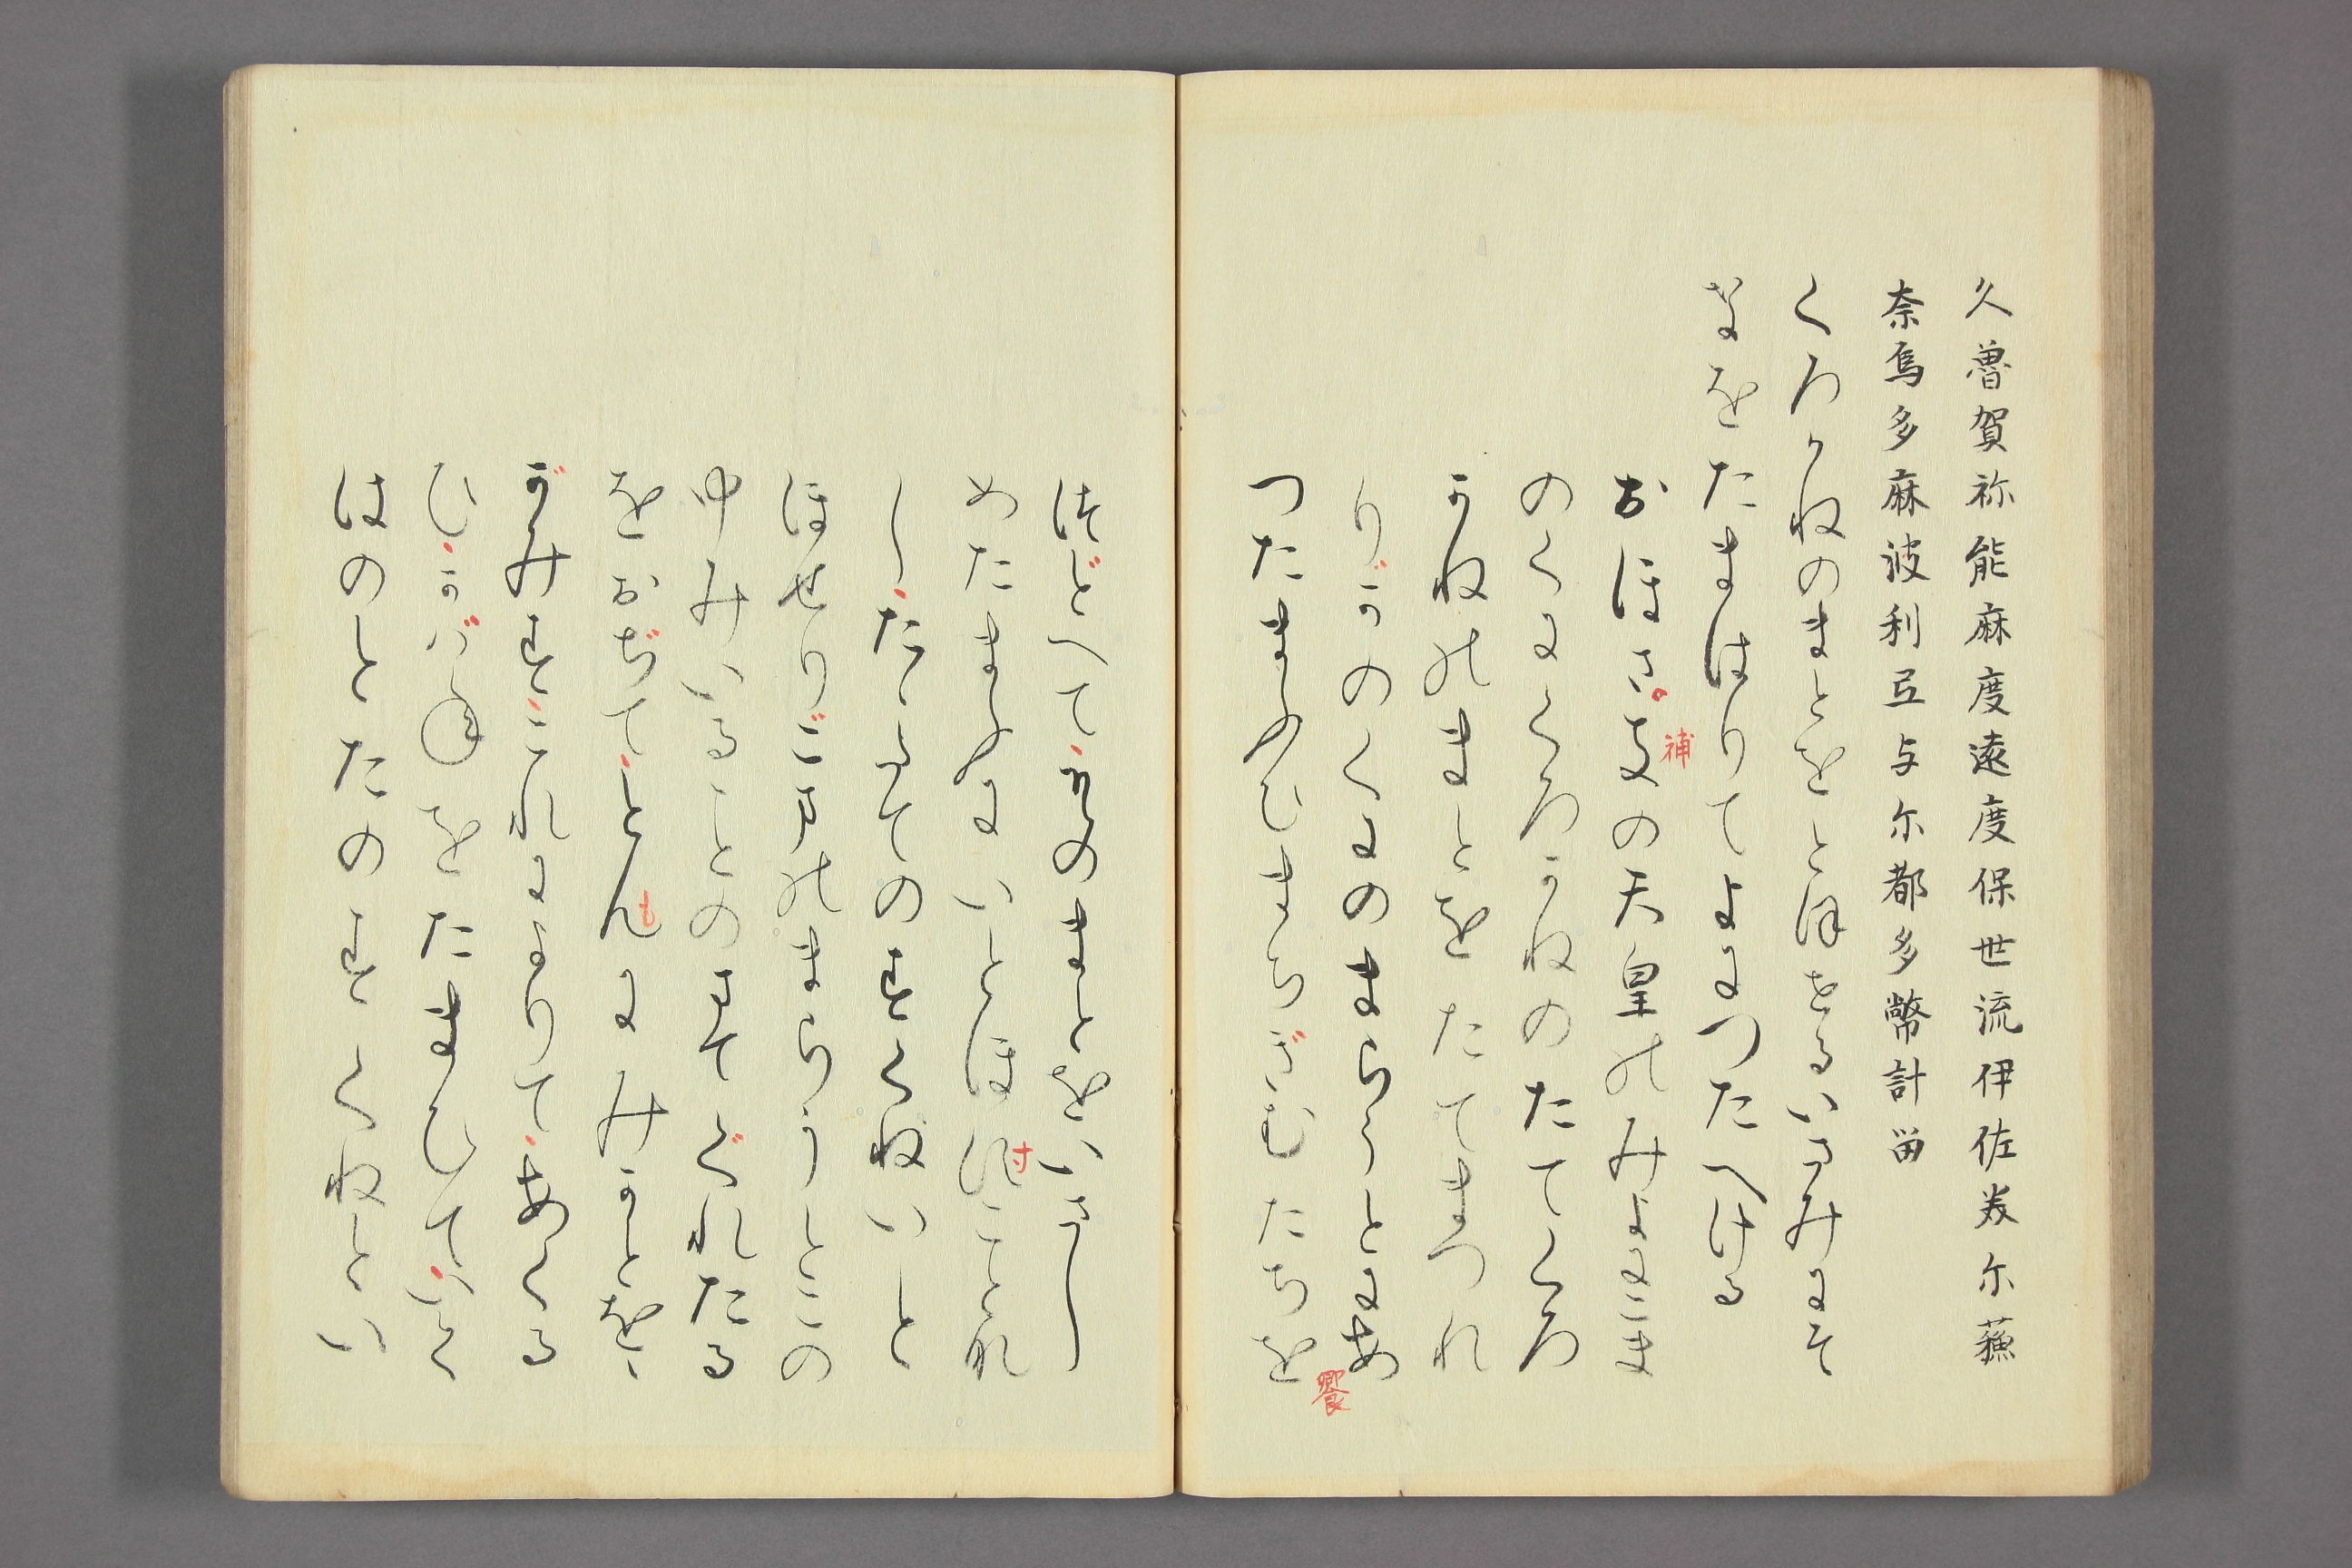 久魯賀祢能麻度遠度保世流伊佐美尓蘓
奈烏多麻波利弖与尓都多幣計畄
くろかねのまとをとほせるいさみにそ
なをたまはりてよにつたへける
おほさゞきの天皇のみよにこま
補
のくにくろかねのたてくろ
かねのまとをたてまつれ
りがのくにのまらうとにあ
饗
つたまふひまうちぎむたちを
つどへてそのまとをいさし
めたまふにいとほすことえ
寸
したゝのすくねいと
ほせりごまのまらうとこの
ゆみいることのすぐれたる
をおぢてともにみかとを
も
がみすこれによりてあくる
ひかばねをたまひていく
はのとたのすくねとい